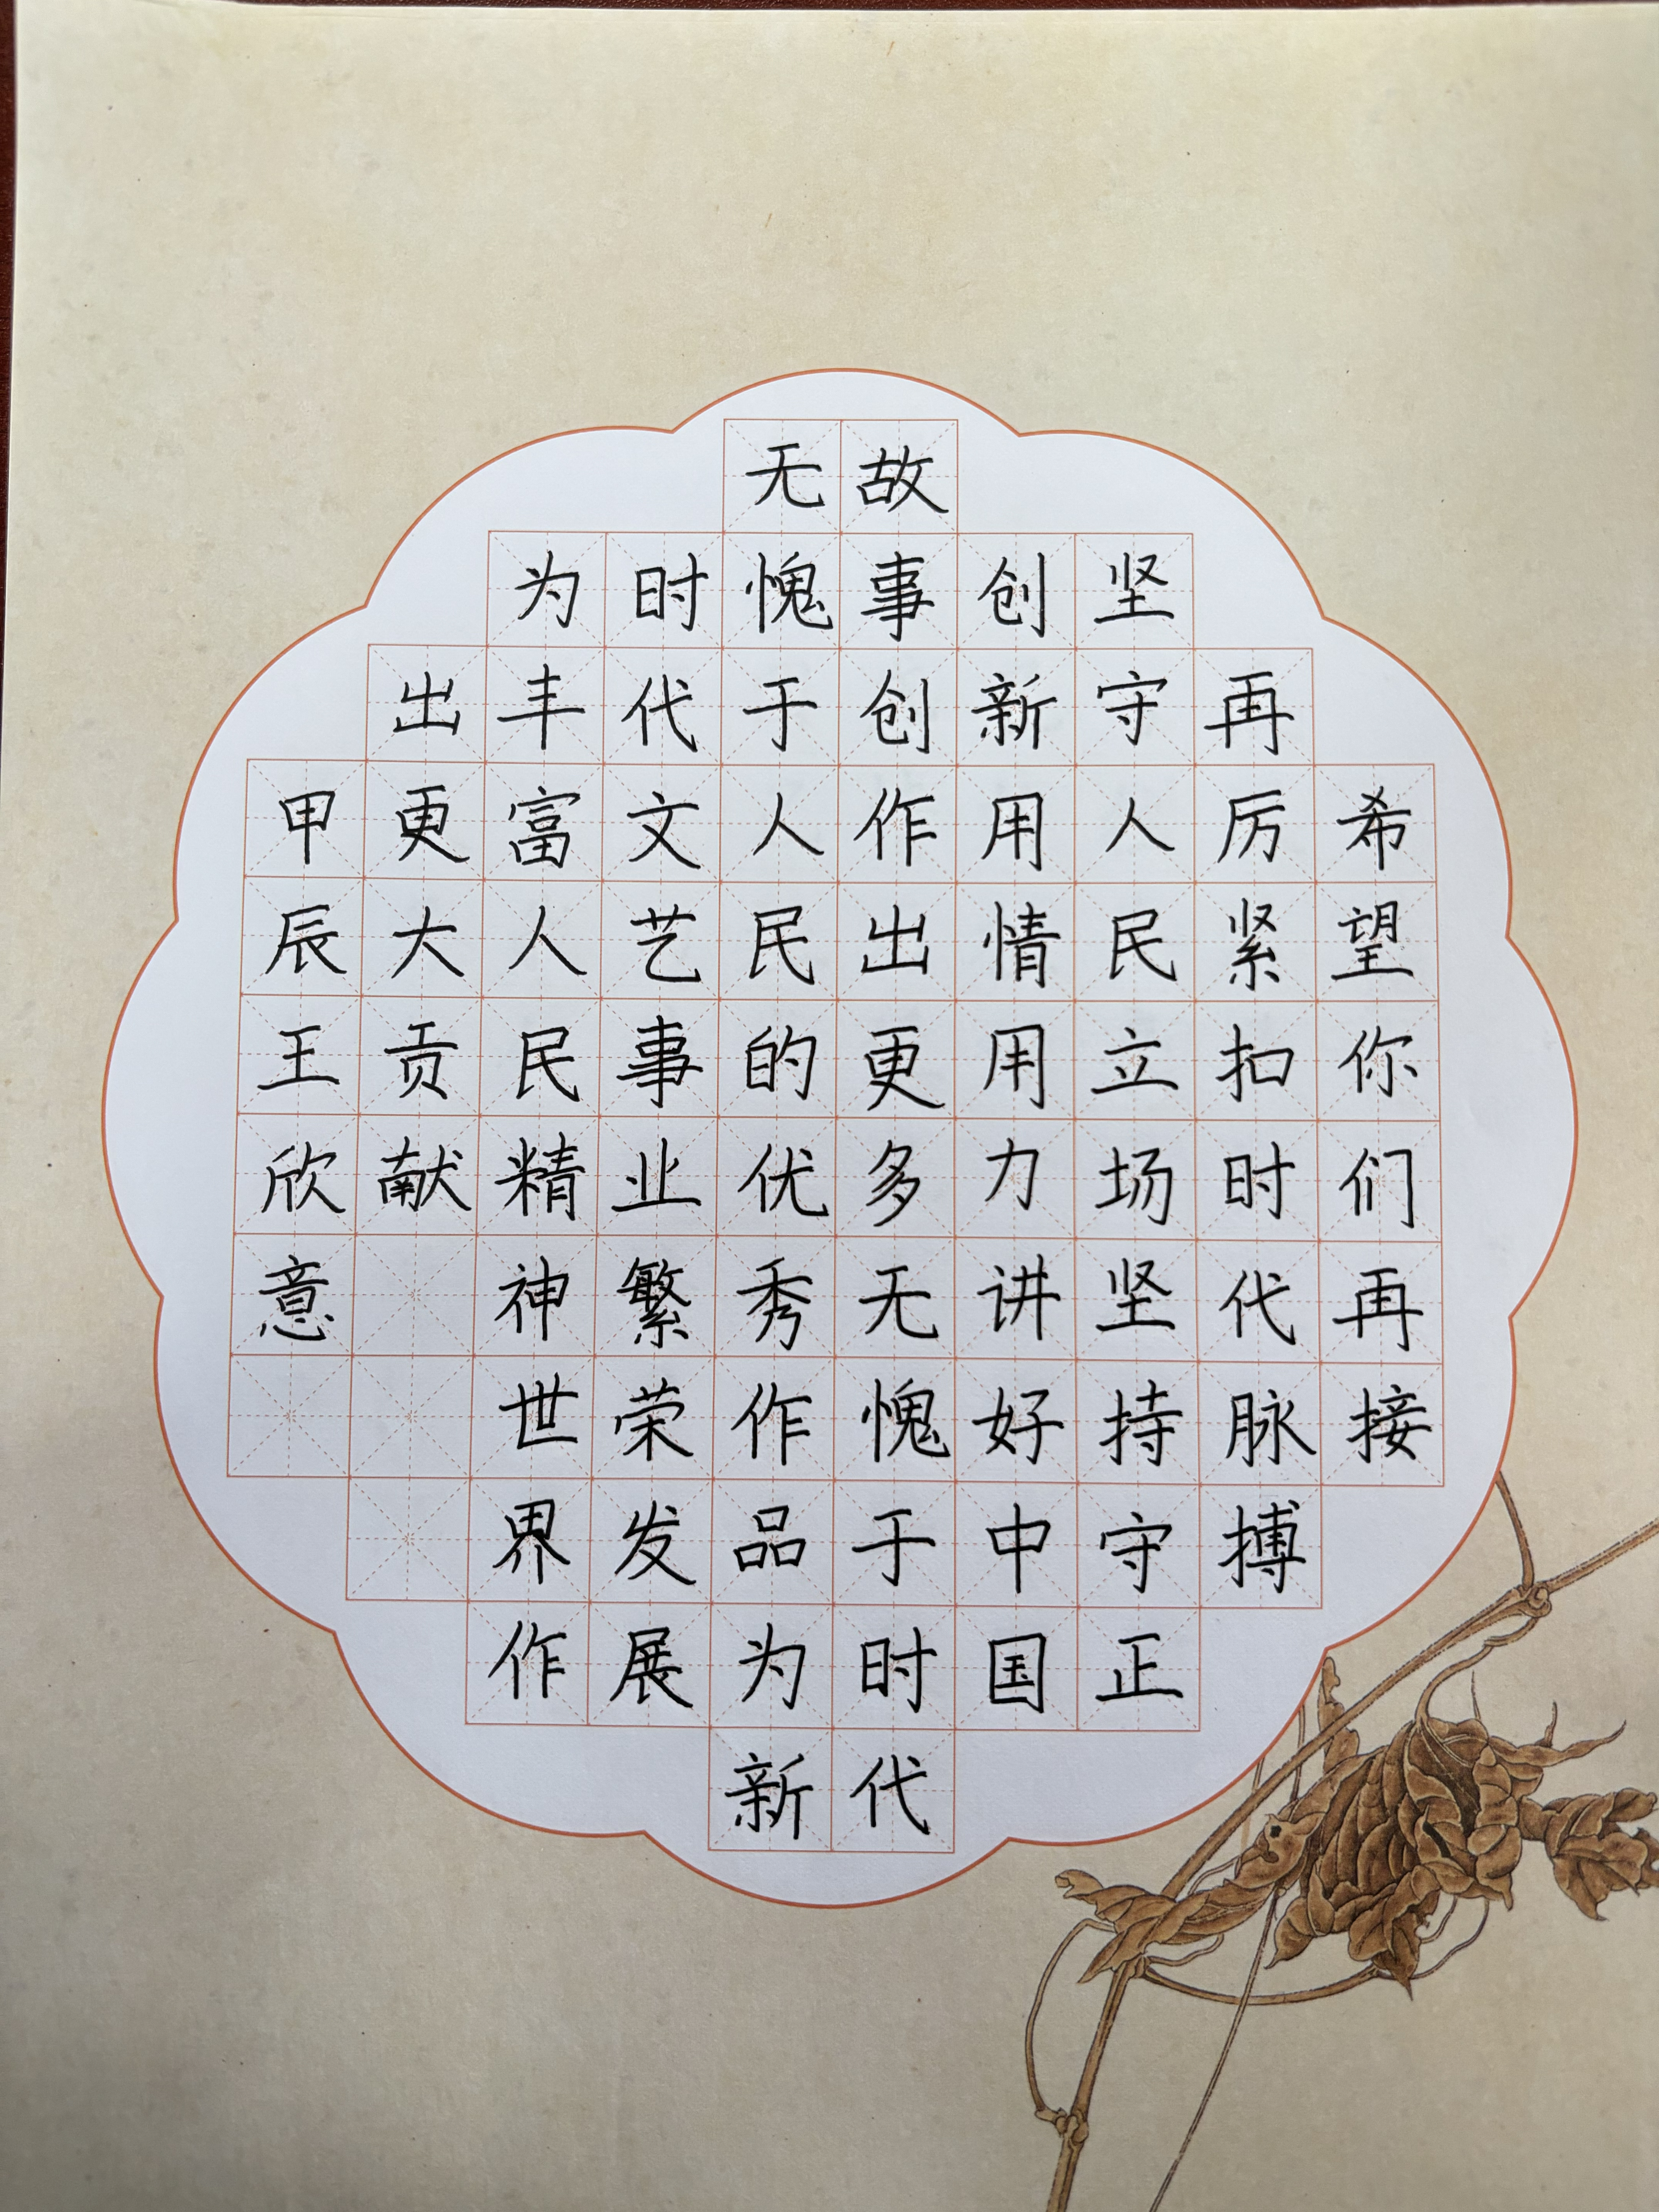 希望你们再接
再厉紧扣时代脉搏
坚守人民立场坚持守正
创新用情用力讲好中国
故事创作出更多无愧于时代
无愧于人民的优秀作品为新
时代文艺事业繁荣发展
为丰富人民精神世界作
出更大贡献
甲辰王欣意